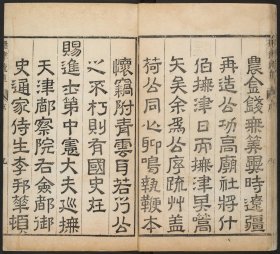 農金餞無羨要時遼疆
再造公功高廟社將什
伯撫津而撫津早篙
矢矣余焉公序疏艸蓋
荷公同心卵鳴執鞭本
懷竊附青雲目若乃公
之不朽則有國史炷
賜進士第中憲大夫巡撫
天津都察院右僉都御
史通家侍生李邦華頓